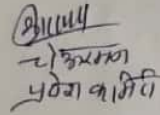 चेअरमन
प्रवेश कमिटी